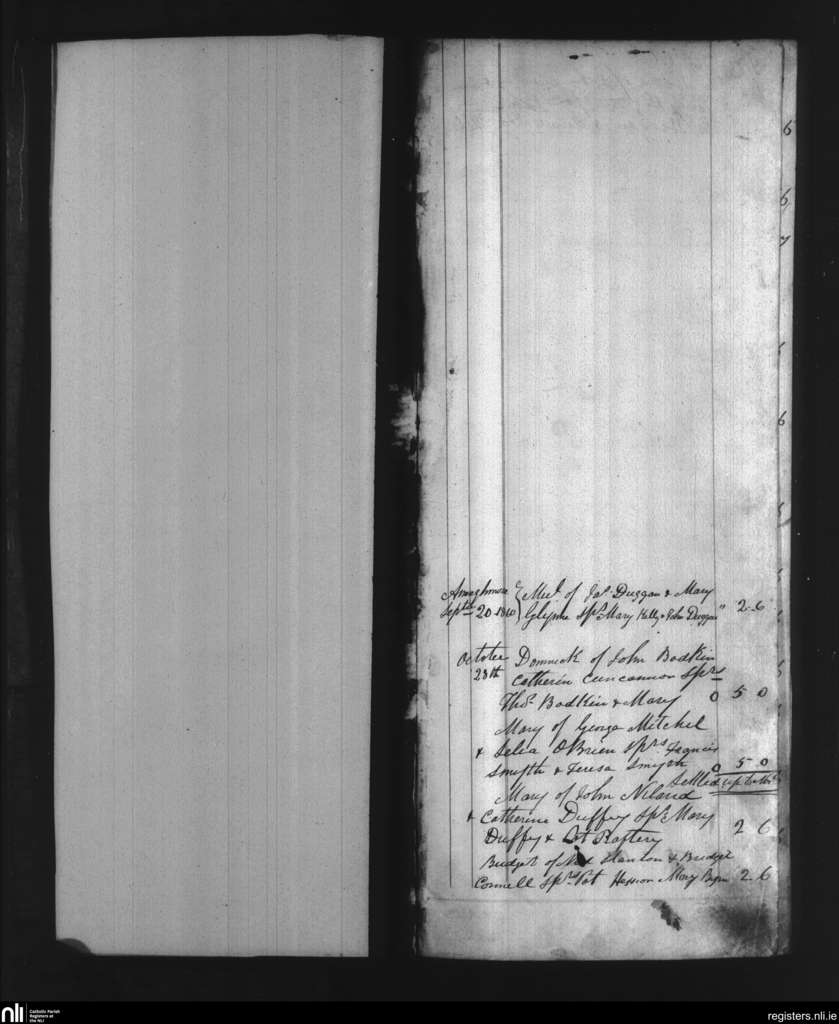 6
6
7
6
Septbr 20 1860 { Micl. of Jas. Duggan & Mary
Glynne Sprs Mary Kelly & John Duggan " 2-6
October Domnick of John Bodkin
28th Catherin Cuncannon Sprs
Thos. Bodkin & Mary 0 5 0
Mary of George Mitchel
& Delia OBrien Sprs. Francis
Smyth & Teresa Smyth 0 5 0
Settled up to this
Mary of John Niland
& Catherine Duffey Sprs Mary
Duffey & Raftery 2 6
Bridget of Stanton & Bridget
Connell Sprs Pat Hession Mary 2-6
nli Catholic Parish
Registers at
the NLI
registers.nli.ie